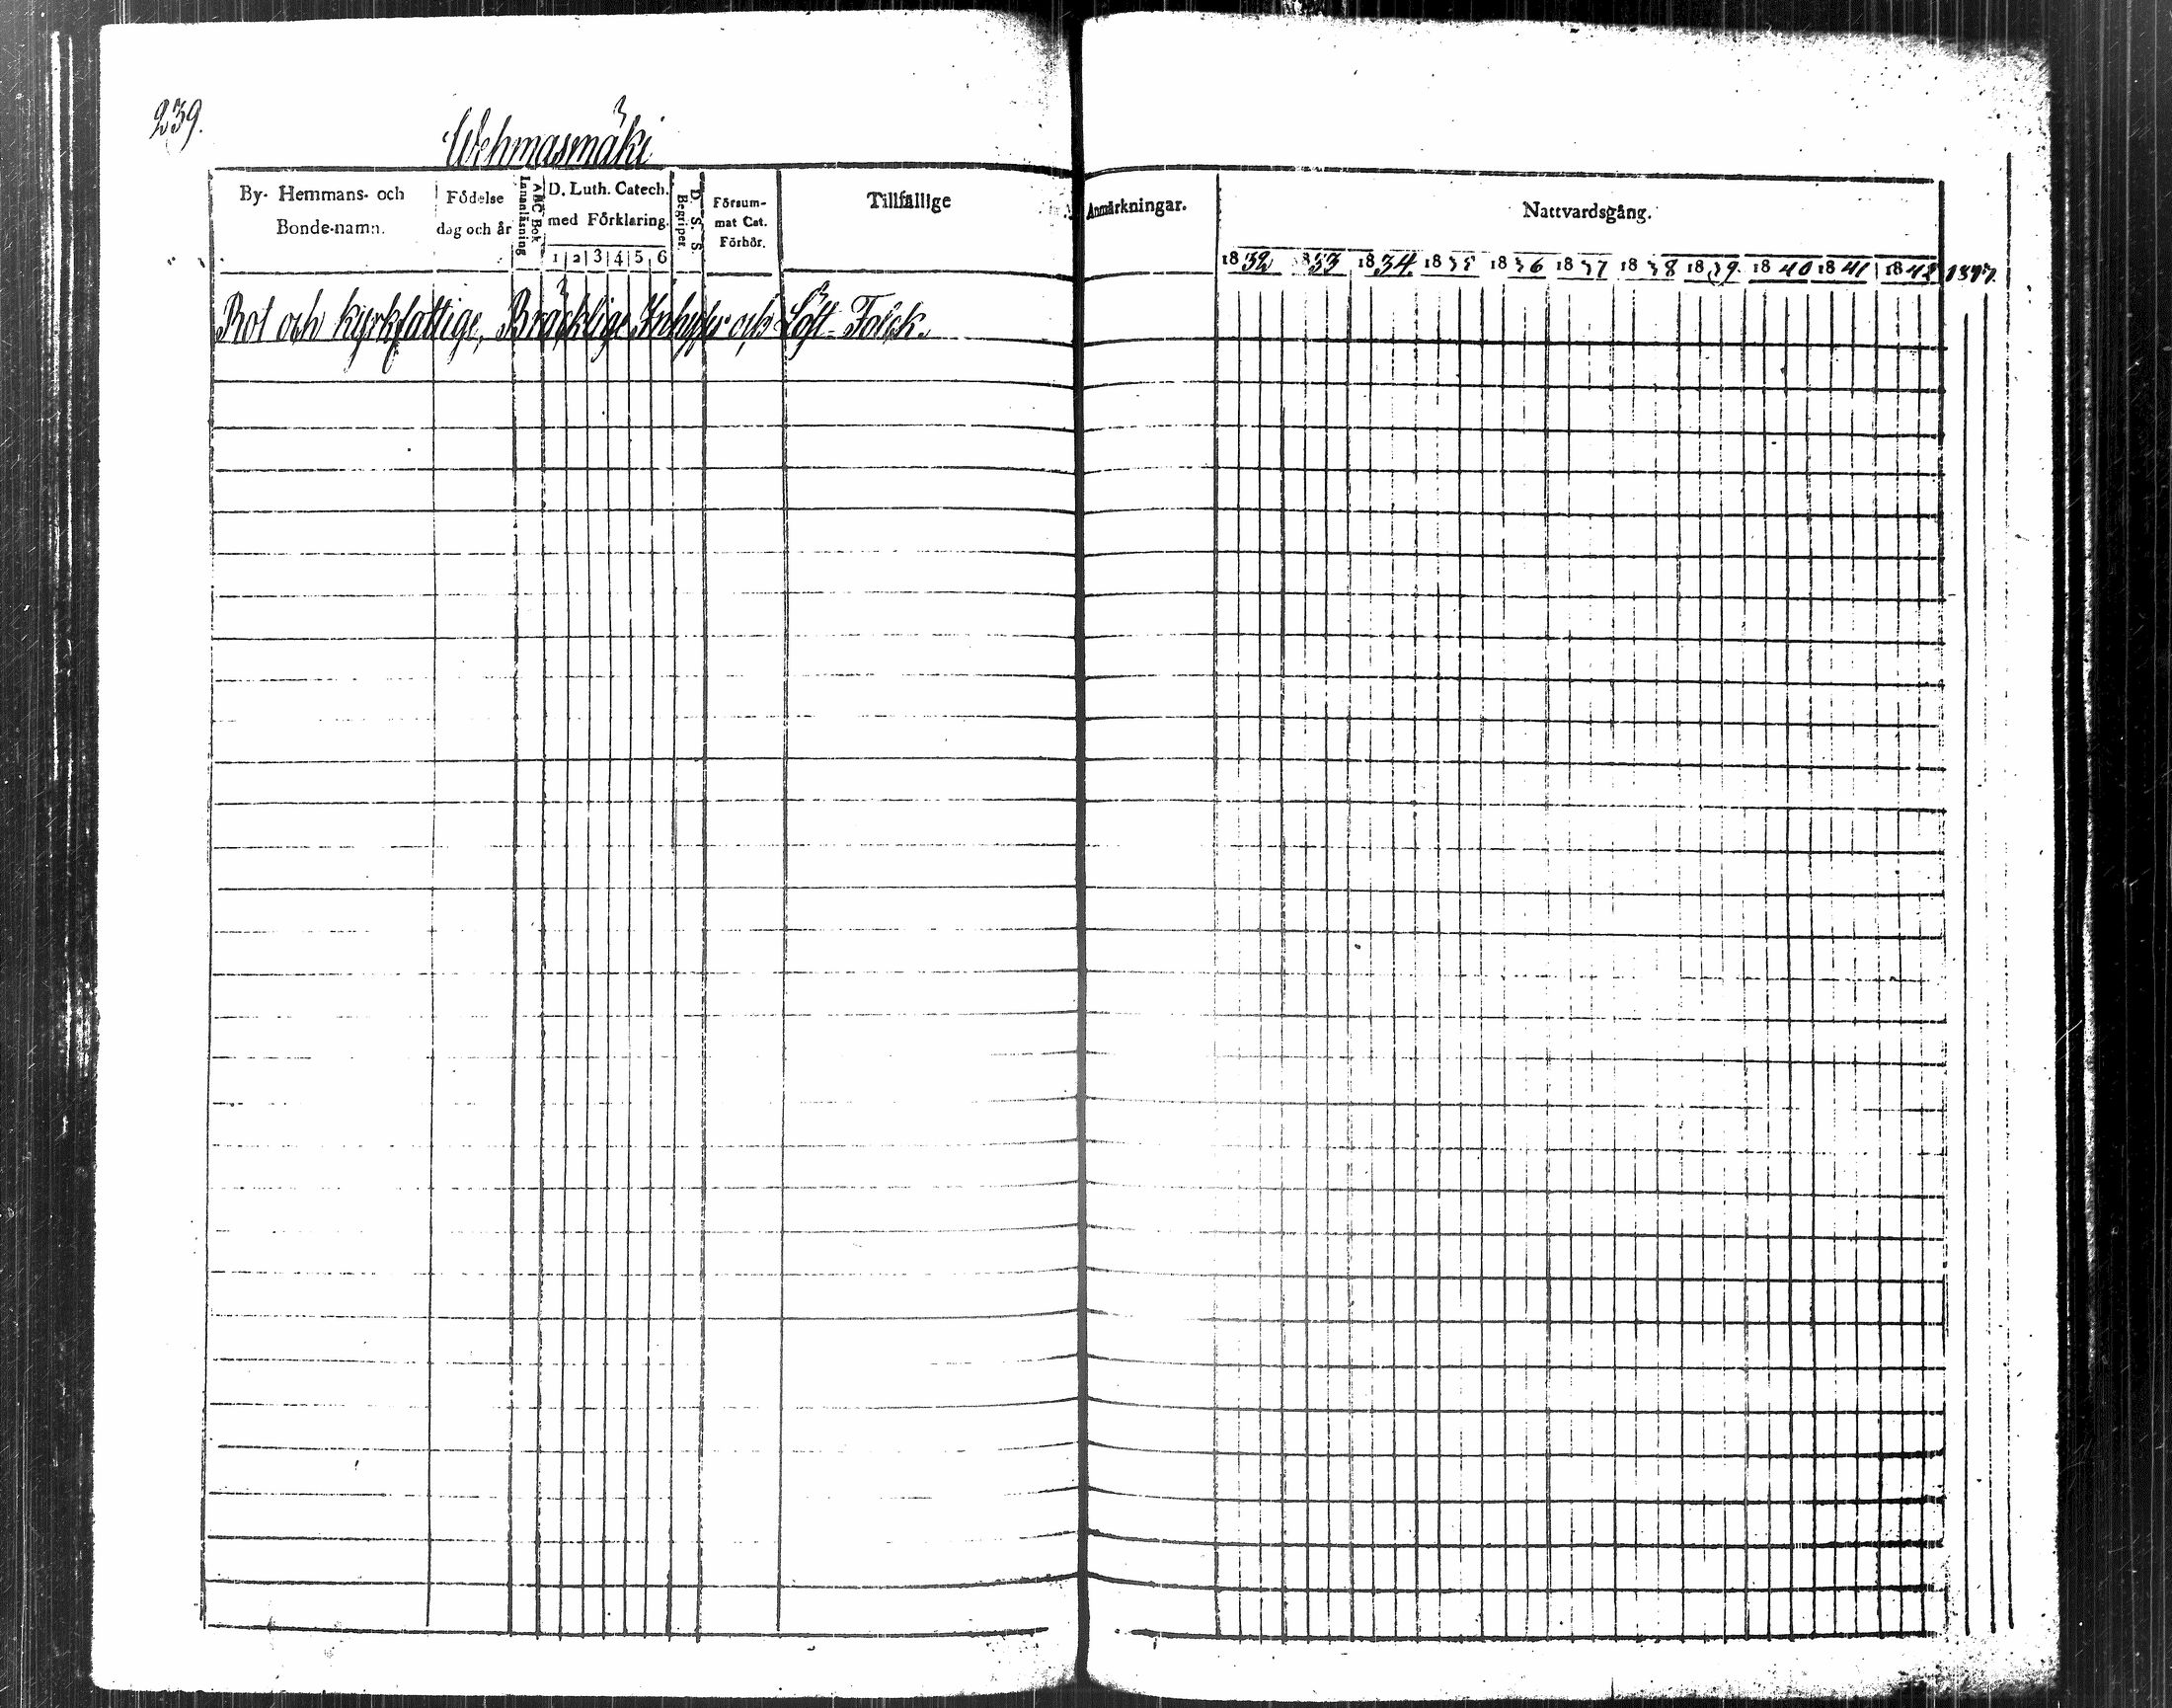 239.
Wehmasmäki
By- Hemmans- och
Bonde-namn.
Födelse
dag och år
Innanläsning
ABC Bok
D. Luth. Catech.
med Förklaring.
1 2 3 4 5 6
D. S. S.
Begriper.
Försum-
mat Cat.
Förhör.
Tillfällige
Anmärkningar.
Nattvardsgång.
1832 1833 1834. 1835 1836 1837 1838 1839. 1840 1841 1842
Rot och kyrkfattige, Bräcklige Inhyses och Löst Folck.